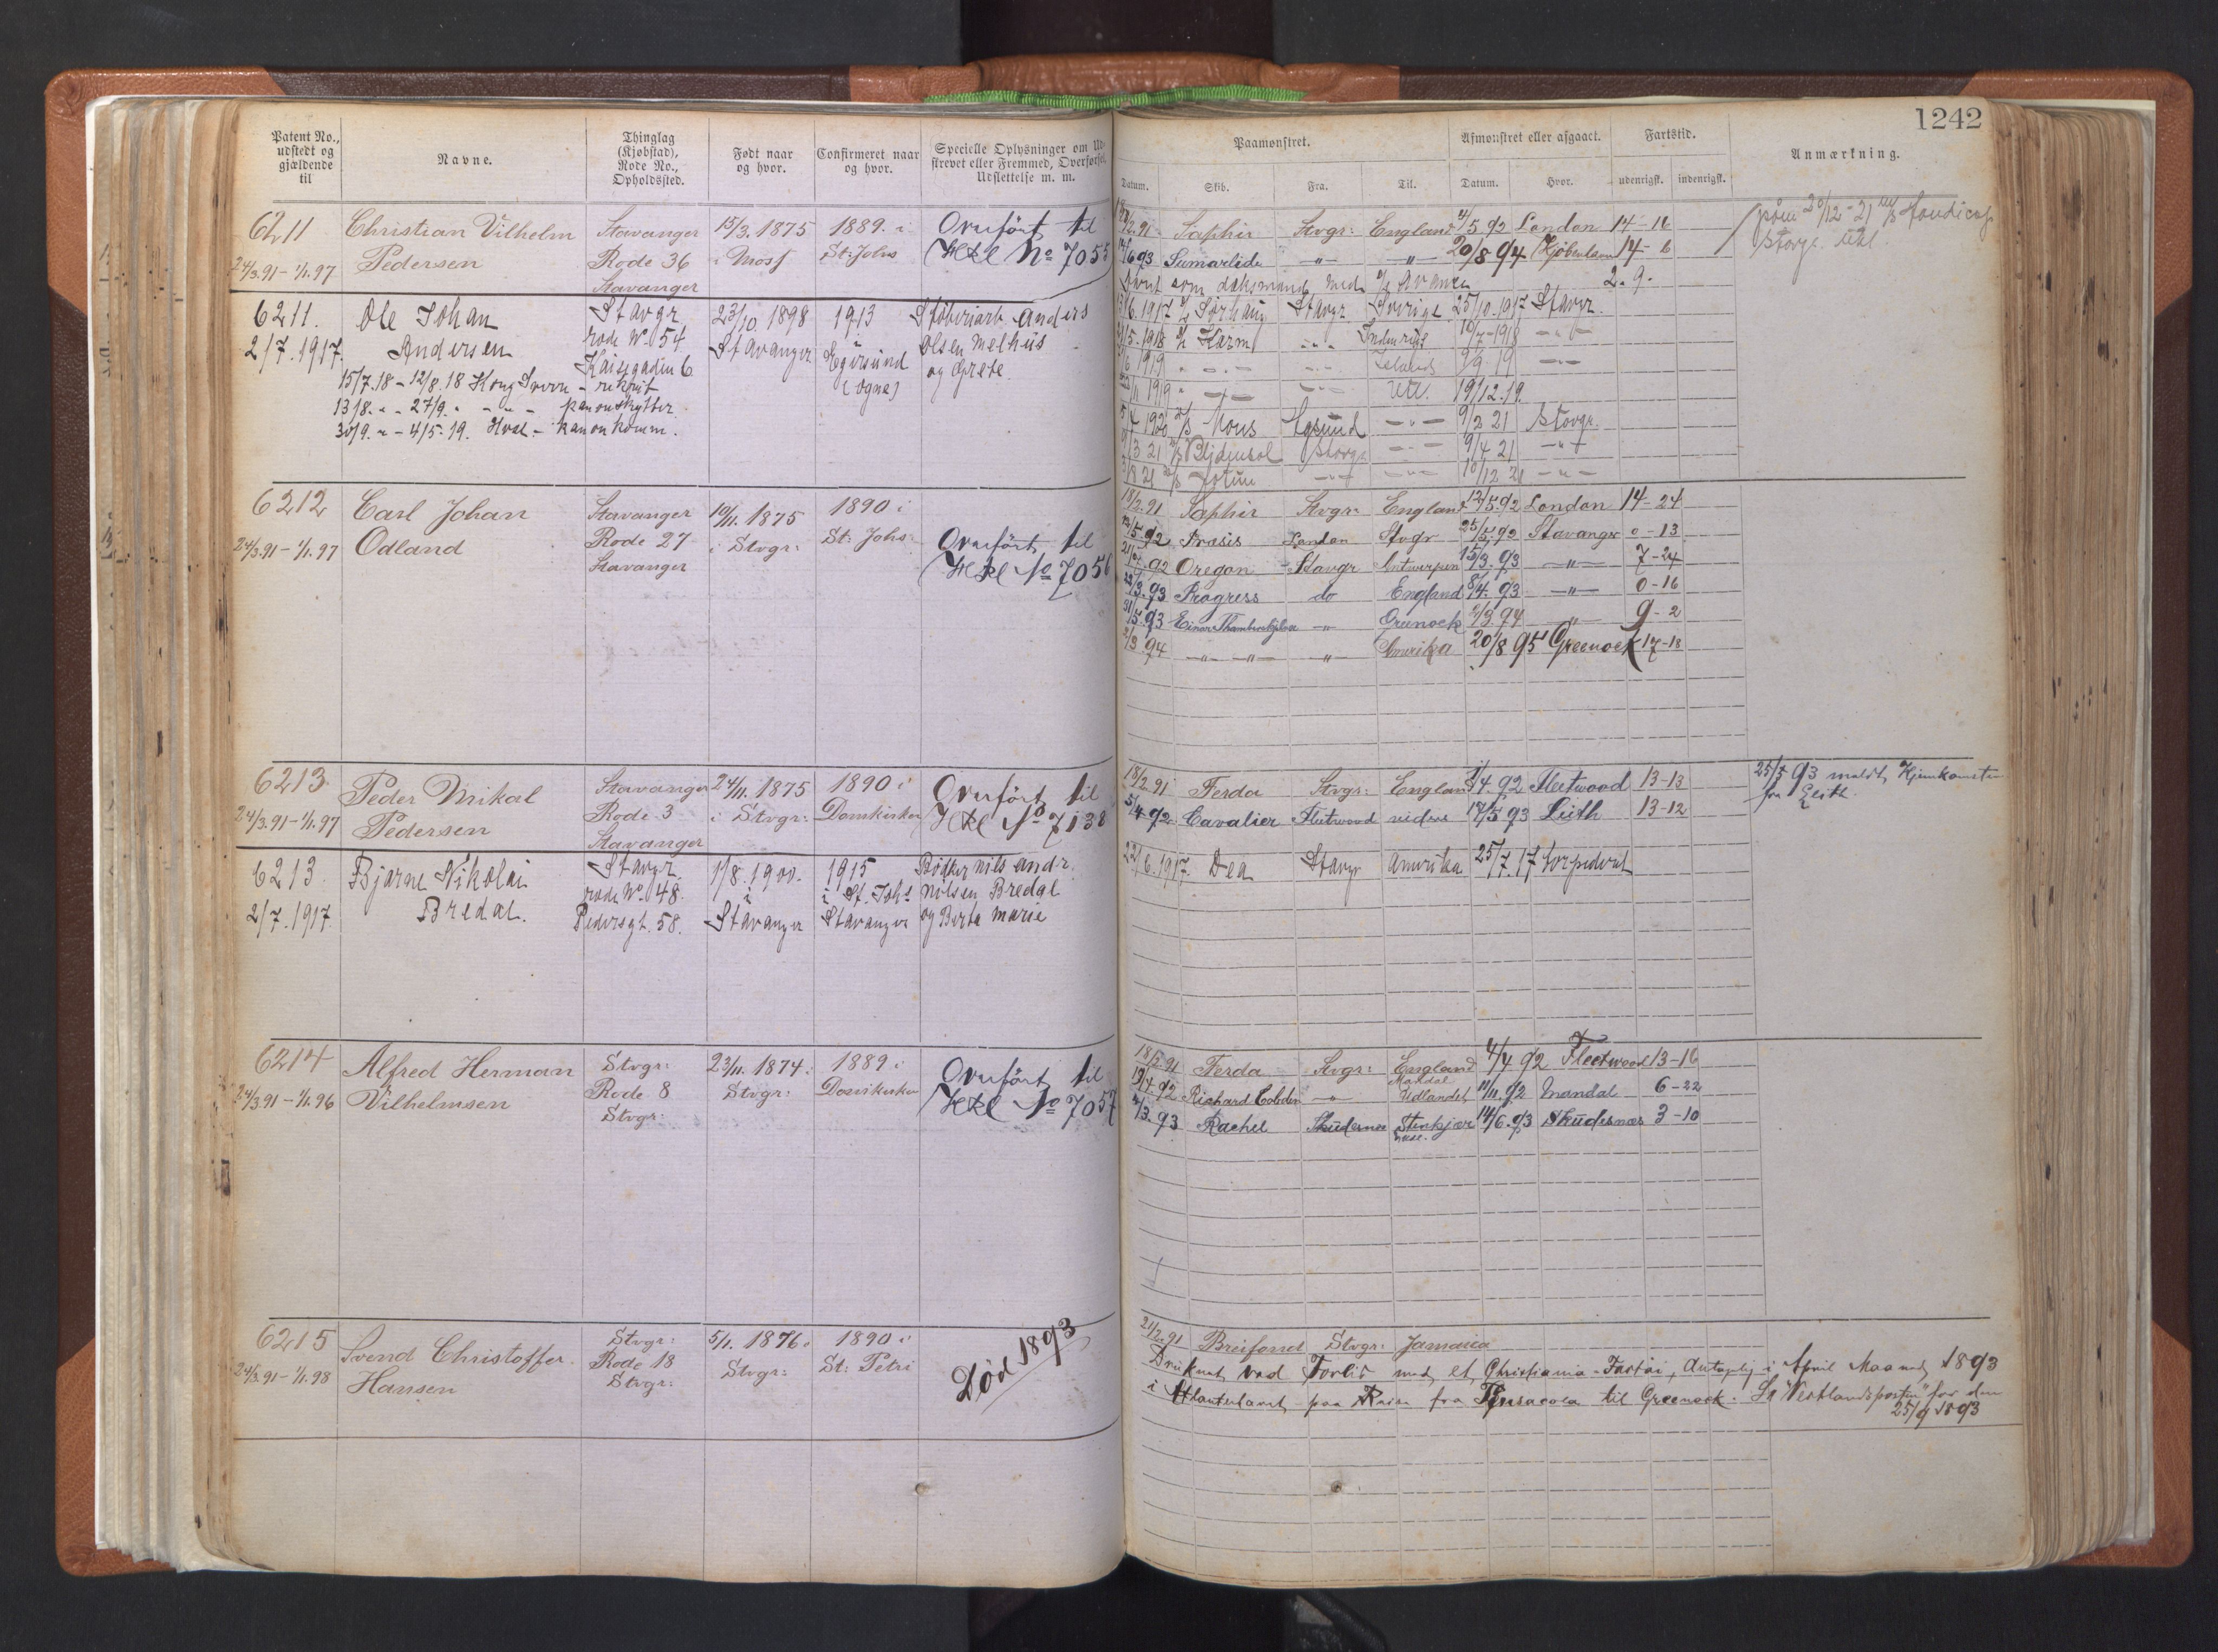 1242
Patent No., udstedt og gjældende til
Navne.
Thinglag (Kjøbstad), Rode No., Opholdssted.
Født naar og hvor.
Confirmeret naar og hvor.
Specielle Oplysninger om Udskrevet eller Fremmed, Overførsel, Udslettelse m. m.
Paamønstret.
Afmønstret eller afgaaet.
Fartstid.
Anmærkning.
Datum. Skib. Fra. Til. Datum. Hvor. udenrigsk. indenrigsk.
6211 Christian Vilhelm Stavanger 15/3. 1875 1889. i Overført til
24/3.91 - 1/1.97 Pedersen Rode 36 i Moss St: Johs No 7055
Stavanger
Saphir Stvgr: England 4/5 92 London 14-16
/6 93 Sumarlide -"- -"- 20/8 94 Kjøbenhavn 14-6
2. 9.
6211. Ole Johan Stavgr 23/10 1898 1913 Støberiarb. Anders
2/7. 1917. Andersen rode No 54 Stavanger Egersund Olsen Melhus
Kaisegaden 6 (Ogne) og Grete
15/7.18 - 12/8.18 Kong Sverre - rekrut
13/8. " - 27/9. " - " - kanonskytter
30/9. " - 4/5-19. Hval - kanonkomm.
/6.1917 Sørhaug Stavgr. Sverige 25/10.1917 Stavgr.
/5.1918 Karmt -"- Indenrigs /7-1918 -"-
1919 -"- 9/9 19 -"-
1919 -"- Utl. 19/12.19.
1920 Mous Egsund -"- 9/2 21 Stavgr.
/3 21 Blidensol Stavgr -"- 9/4 21 -"-
/8 21 Jotun -"- -"- 10/12 21 -"-
6212 Carl Johan Stavanger 10/11. 1875 1890 i
24/3.91 - 1/1.97 Odland Rode 27 i Stvgr: St: Johs: Overført til
Stavanger No 7056
18/2.91 Saphir Stvgr: England 12/5.92 London 14-24
/5.92 Præsis London Stvgr 25/5.92 Stavanger 0-13
92 Oregon Stavgr Antwerpen 15/3.93 -"- 7-24
22/3.93 Progress do England 8/4.93 -"- 0-16
31/5.93 Grenock 2/3.94 -"- 9-2
2/3.94 -"- -"- -"- Amerika 20/8 95 Greenock 17-18
6213. Peder Mikal Stavanger 24/11. 1875 1890 i Overført til
24/3.91 - 1/1.97 Pedersen Rode 3 i Stvgr: Domkirken No 7138
Stavanger
18/2.91 Ferda Stvgr: England /4.92 Fleetwood 13-13
5/4.92 Cavalier Fleetwood videre 17/5 93 Leith 13-12
25/5 93 meldt Hjemkomsten
fra Leith.
6213. Bjarne Nikolai Stavgr. 1/8. 1900. 1915 Bødker Nils Andr.
2/7. 1917. Bredal. rode No. 48. i i St. Johs Nilsen Bredal
Pedersgt. 58. Stavanger Stavanger og Berta Marie
22/6.1917. Dea Stavgr Amerika 25/7.17 torpedert
6214 Alfred Herman Stvgr: 23/11. 1874 i 1889 i Overført til
24/3.91 - 1/1.96 Vilhelmsen Rode 8 Stvgr: Domkirken No 7057
Stvgr:
18/2.91 Ferda Stvgr: England 4/4 92 Fleetwood 13-16
19/4.92 Richard Cobden -"- Mandal Udlandet 11/11.92 Mandal 6-22
/3.93 Rachel Skudesnes Stenkjær 14/6.93 Skudesnæs 3-10
6215 Svend Christoffer Stvgr: 5/1. 1876 i 1890 i
24/3.91 - 1/1.98 Hansen Rode 18 Stvgr: St: Petri
Stvgr:
Død 1893
21/2.91 Breifond Stvgr: Jamaica
Druknet ved Forlis med et Christiania-Fartøi, i April Maaned 1893
i Atlanterhavet paa Reise fra Pensacola til Greenock. Se "Vestlandsposten" for den
25/9 1893